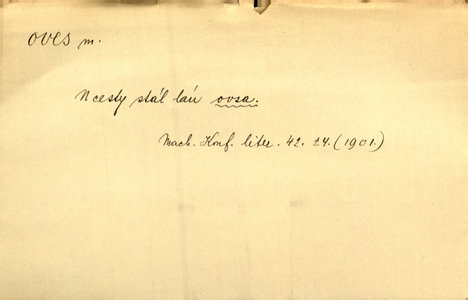 oves m.
U cesty stál lán ovsa.
Mach. Konf. liter. 42. 24. (1901.)